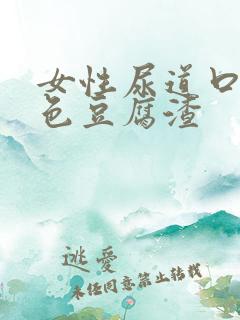 女性尿道口
色豆腐渣
逃爱
未任同意禁止转载